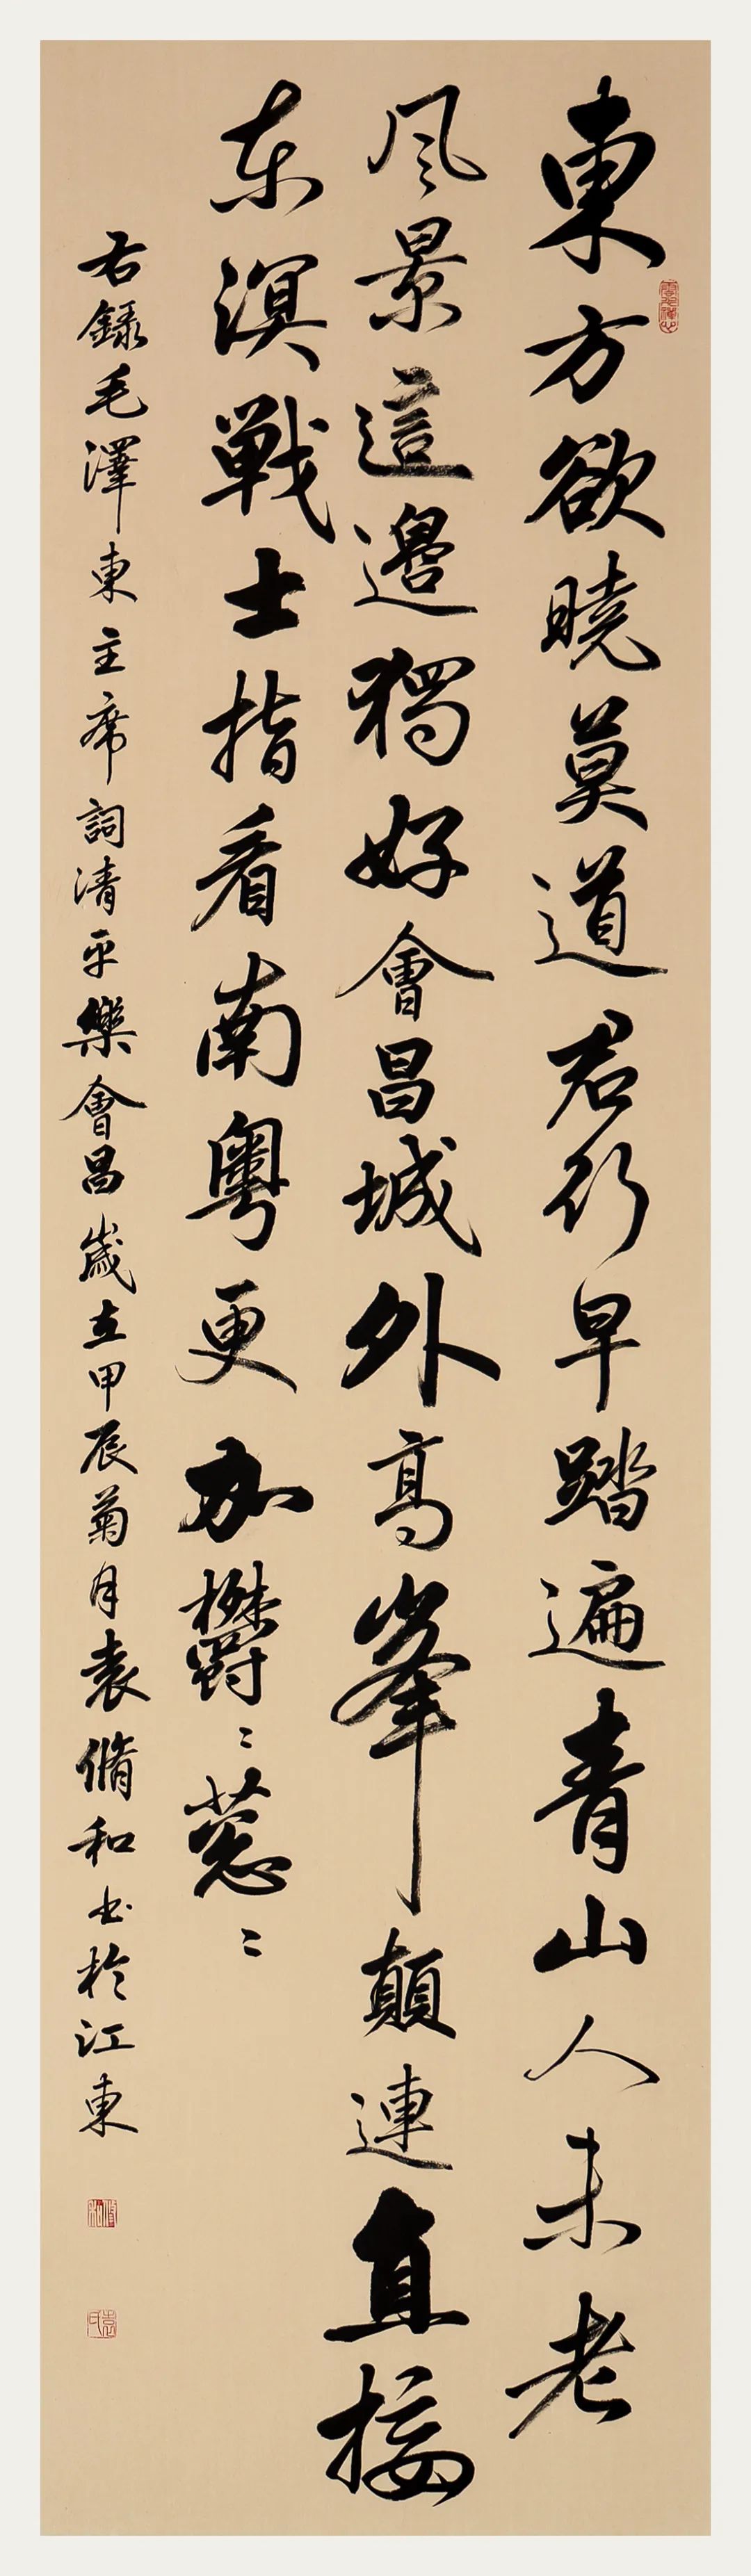 東方欲曉莫道君行早踏遍青山人未老
風景這邊獨好會昌城外高峯顛連直接
东溟戰士指看南粵更加欝〻蔥〻
右錄毛澤東主席詞清平樂會昌歲在甲辰菊月袁脩和书於江東